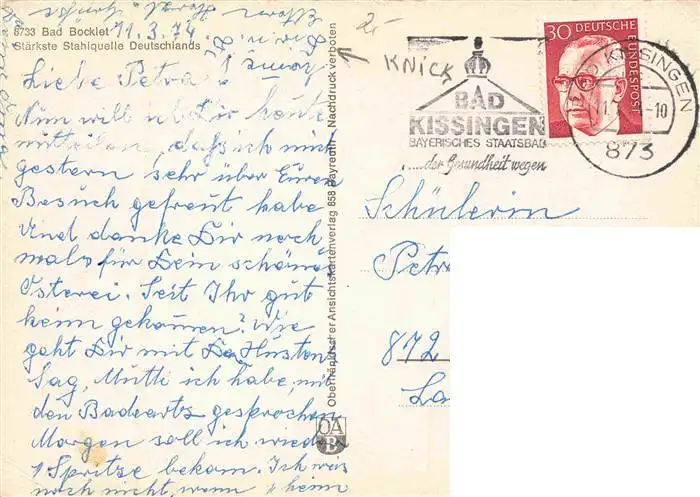 8733 Bad Bocklet
Stärkste Stahlquelle Deutschlands
11.3.74
Liebe Petra!
Nun will ich Dir heute
mitteilen, daß ich mich
gestern sehr über Euren
Besuch gefreut habe
Und danke Dir noch
mals für Dein schönes
Osterei. Seit Ihr gut
heim gekommen? Wie
geht Dir mit Husten
Sag, Mutti ich habe, mit
den Badearts gesprochen
Morgen soll ich wieder
1 Spritze bekom. Ich weis
noch nicht, wann heim
Oberfränkischer Ansichtskartenverlag 858 Bayreuth · Nachdruck verboten
OA
B
2-
KNICK
BAD
KISSINGEN
BAYERISCHES STAATSBAD
.....der Gesundheit wegen
30 DEUTSCHE
BUNDESPOST
KISSINGEN
-10
873
Schülerin
Petra
872